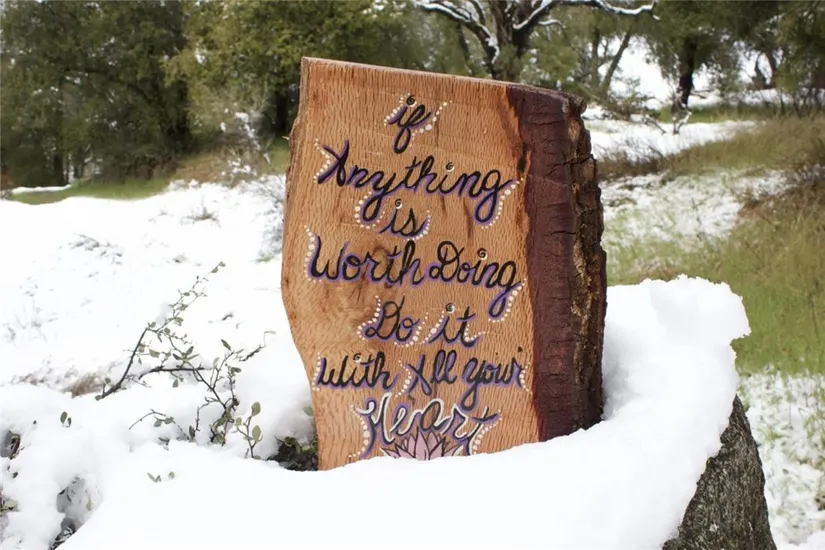 if
Anything
is
Worth Doing
Do it
With All your
Heart